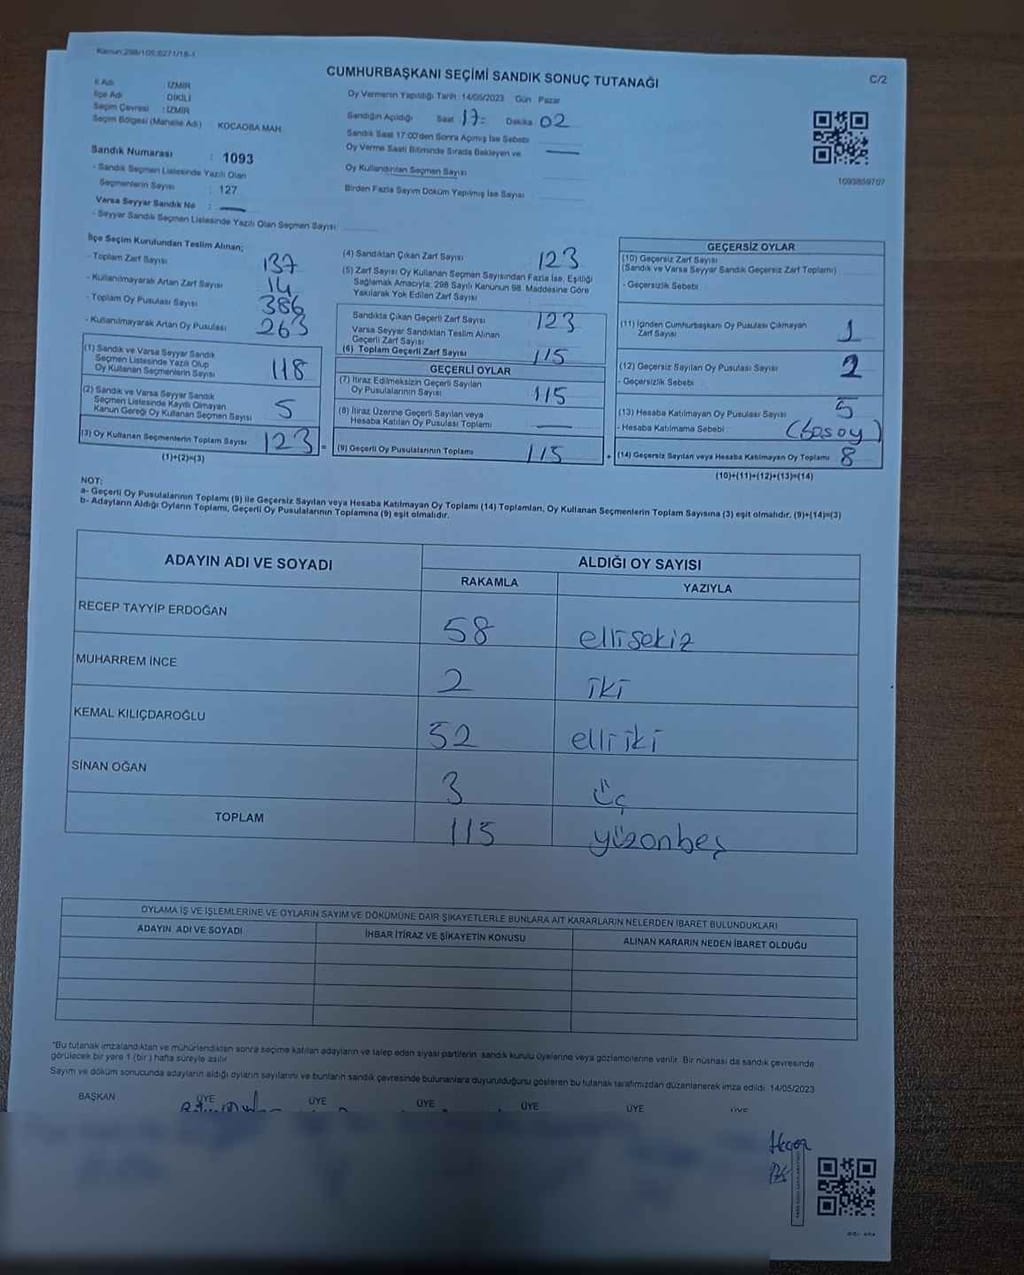 Kanun:298/105;6271/18-1
CUMHURBAŞKANI SEÇİMİ SANDIK SONUÇ TUTANAĞI
C/2
İl Adı : İZMİR
İlçe Adı : DİKİLİ
Seçim Çevresi : İZMİR
Seçim Bölgesi (Mahalle Adı) KOCAOBA MAH.
Sandık Numarası : 1093
- Sandık Seçmen Listesinde Yazılı Olan
Seçmenlerin Sayısı : 127
Varsa Seyyar Sandık No : —
- Seyyar Sandık Seçmen Listesinde Yazılı Olan Seçmen Sayısı
Oy Vermenin Yapıldığı Tarih :14/05/2023 Gün Pazar
Sandığın Açıldığı Saat 17: Dakika 02
Sandık Saat 17:00'den Sonra Açılmış İse Sebebi
Oy Verme Saati Bitiminde Sırada Bekleyen ve —
Oy Kullandırılan Seçmen Sayısı
Birden Fazla Sayım Döküm Yapılmış İse Sayısı
1093859707
İlçe Seçim Kurulundan Teslim Alınan;
- Toplam Zarf Sayısı 137
- Kullanılmayarak Artan Zarf Sayısı 14
- Toplam Oy Pusulası Sayısı 386
- Kullanılmayarak Artan Oy Pusulası 263
(1) Sandık ve Varsa Seyyar Sandık
Seçmen Listesinde Yazılı Olup
Oy Kullanan Seçmenlerin Sayısı 118
(2) Sandık ve Varsa Seyyar Sandık
Seçmen Listesinde Kayıtlı Olmayan
Kanun Gereği Oy Kullanan Seçmen Sayısı 5
(3) Oy Kullanan Seçmenlerin Toplam Sayısı 123 =
(1)+(2)=(3)
(4) Sandıktan Çıkan Zarf Sayısı 123
(5) Zarf Sayısı Oy Kullanan Seçmen Sayısından Fazla İse, Eşitliği
Sağlamak Amacıyla; 298 Sayılı Kanunun 98. Maddesine Göre
Yakılarak Yok Edilen Zarf Sayısı
Sandıkta Çıkan Geçerli Zarf Sayısı 123
Varsa Seyyar Sandıktan Teslim Alınan
Geçerli Zarf Sayısı
(6) Toplam Geçerli Zarf Sayısı 115
GEÇERLİ OYLAR
(7) İtiraz Edilmeksizin Geçerli Sayılan
Oy Pusulalarının Sayısı 115
(8) İtiraz Üzerine Geçerli Sayılan veya
Hesaba Katılan Oy Pusulası Toplamı —
(9) Geçerli Oy Pusulalarının Toplamı 115 +
GEÇERSİZ OYLAR
(10) Geçersiz Zarf Sayısı
(Sandık ve Varsa Seyyar Sandık Geçersiz Zarf Toplamı)
- Geçersizlik Sebebi
(11) İçinden Cumhurbaşkanı Oy Pusulası Çıkmayan
Zarf Sayısı 1
(12) Geçersiz Sayılan Oy Pusulası Sayısı 2
- Geçersizlik Sebebi
(13) Hesaba Katılmayan Oy Pusulası Sayısı 5
- Hesaba Katılmama Sebebi (boş oy)
(14) Geçersiz Sayılan veya Hesaba Katılmayan Oy Toplamı 8
(10)+(11)+(12)+(13)=(14)
NOT:
a- Geçerli Oy Pusulalarının Toplamı (9) ile Geçersiz Sayılan veya Hesaba Katılmayan Oy Toplamı (14) Toplamları, Oy Kullanan Seçmenlerin Toplam Sayısına (3) eşit olmalıdır. (9)+(14)=(3)
b- Adayların Aldığı Oyların Toplamı, Geçerli Oy Pusulalarının Toplamına (9) eşit olmalıdır.
ADAYIN ADI VE SOYADI
ALDIĞI OY SAYISI
RAKAMLA YAZIYLA
RECEP TAYYİP ERDOĞAN 58 ellisekiz
MUHARREM İNCE 2 iki
KEMAL KILIÇDAROĞLU 52 elli iki
SİNAN OĞAN 3 üç
TOPLAM 115 yüzonbeş
OYLAMA İŞ VE İŞLEMLERİNE VE OYLARIN SAYIM VE DÖKÜMÜNE DAİR ŞİKAYETLERLE BUNLARA AİT KARARLARIN NELERDEN İBARET BULUNDUKLARI
ADAYIN ADI VE SOYADI İHBAR İTİRAZ VE ŞİKAYETİN KONUSU ALINAN KARARIN NEDEN İBARET OLDUĞU
*Bu tutanak imzalandıktan ve mühürlendikten sonra seçime katılan adayların ve talep eden siyasi partilerin sandık kurulu üyelerine veya gözlemcilerine verilir. Bir nüshası da sandık çevresinde
görülecek bir yere 1 (bir) hafta süreyle asılır.
Sayım ve döküm sonucunda adayların aldığı oyların sayılarını ve bunların sandık çevresinde bulunanlara duyurulduğunu gösteren bu tutanak tarafımızdan düzenlenerek imza edildi. 14/05/2023
BAŞKAN ÜYE ÜYE ÜYE ÜYE ÜYE ÜYE